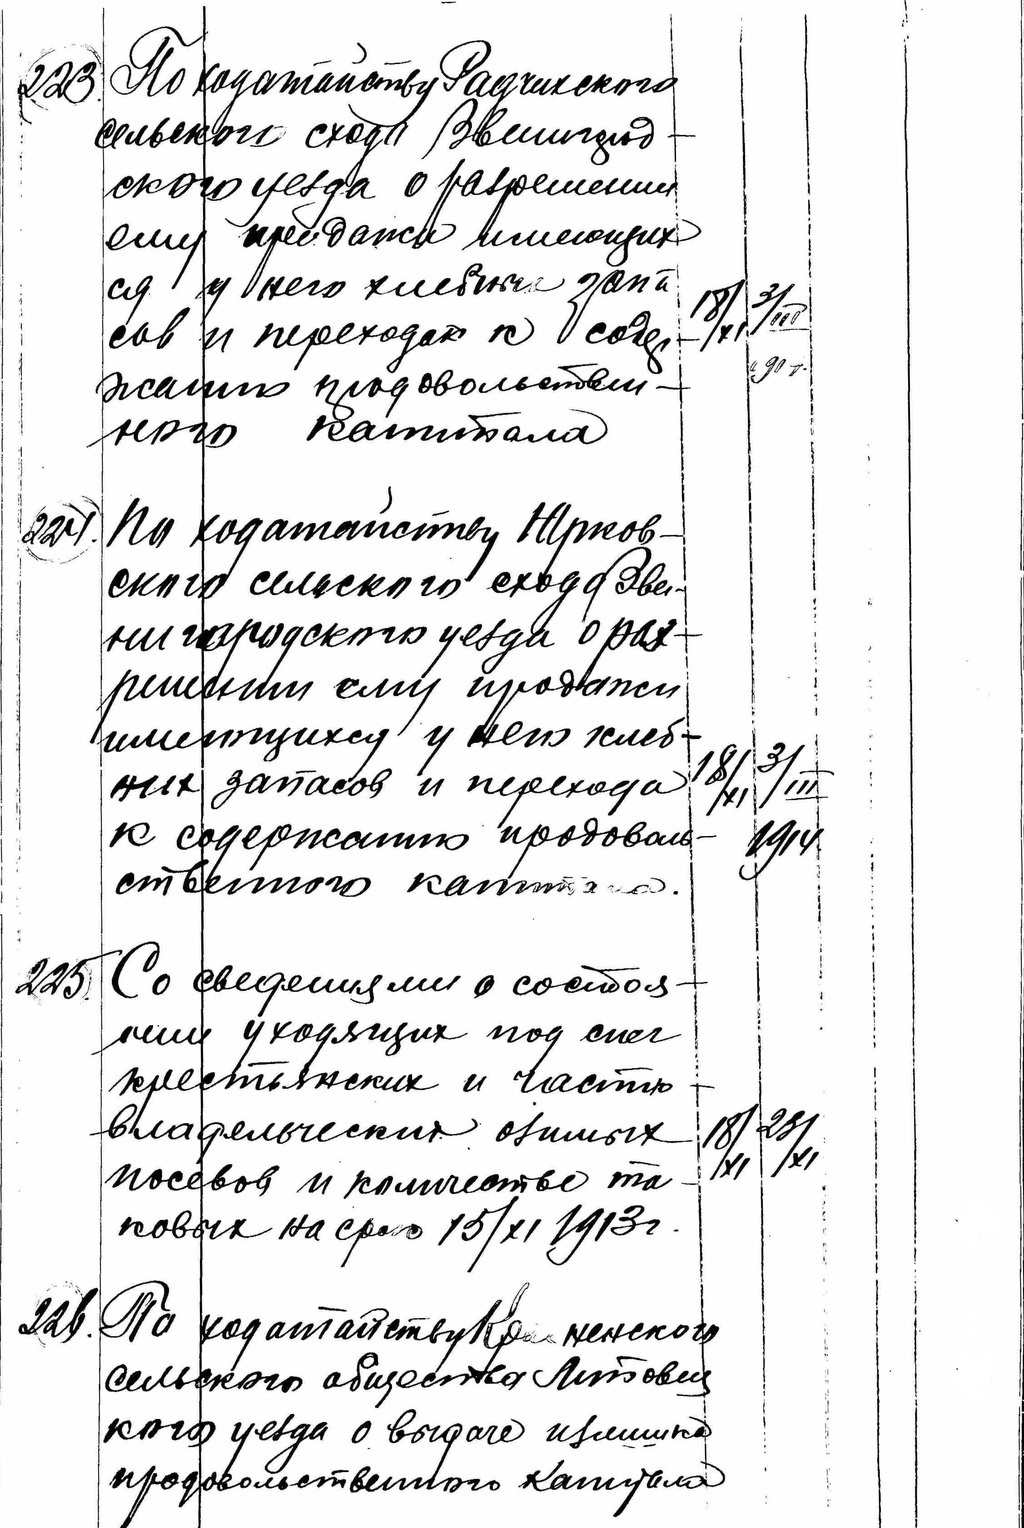 223. По ходатайству Радчихского
сельского схода Звенигород-
ского уезда о разрешении
ему продажи имеющих
ся у него хлебных запа
сов и переходак к содер-
жанию продовольствен-
ного капитала
18/XI 3/III
224. По ходатайству Юрков-
ского сельского схода Зве-
нигородского уезда о раз-
решении ему продажи
имеющихся у него хлеб-
них запасов и перехода
к содержанию продоволь-
ственного капитала.
18/XI 3/III
1914
225. Со сведениями о состоя-
нии уходящих под снег
крестьянских и частно-
владельческих озимых
посевов и количестве та-
ковых на срок 15/XI 1913г.
18/XI 28/XI
226. По ходатайству
сельского общества Липовец
кого уезда о выдаче излишка
продовольственного капитала